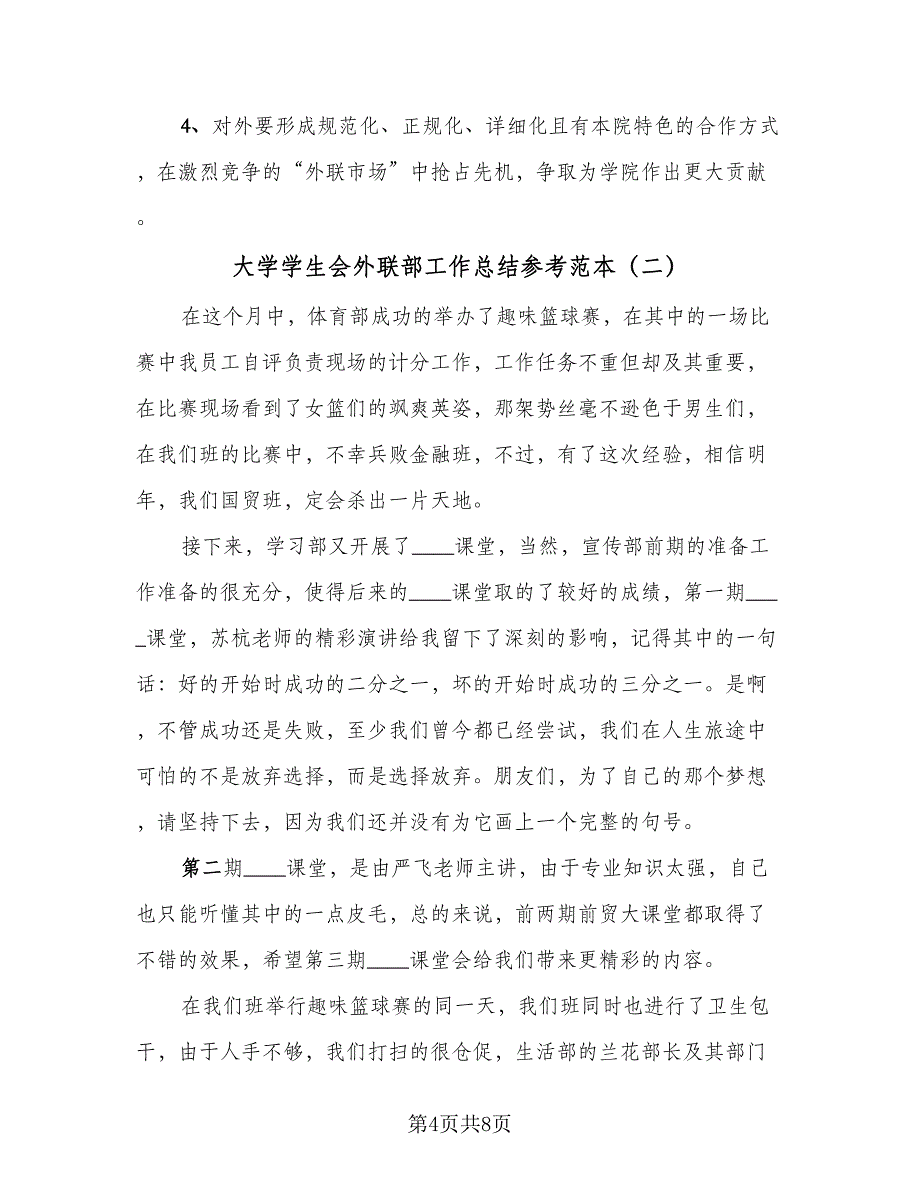 4、对外要形成规范化、正规化、详细化且有本院特色的合作方式
，在激烈竞争的“外联市场”中抢占先机，争取为学院作出更大贡献
。
大学学生会外联部工作总结参考范本（二）
在这个月中，体育部成功的举办了趣味篮球赛，在其中的一场比
赛中我员工自评负责现场的计分工作，工作任务不重但却及其重要，
在比赛现场看到了女篮们的飒爽英姿，那架势丝毫不逊色于男生们，
在我们班的比赛中，不幸兵败金融班，不过，有了这次经验，相信明
年，我们国贸班，定会杀出一片天地。
接下来，学习部又开展了____课堂，当然，宣传部前期的准备工
作准备的很充分，使得后来的____课堂取的了较好的成绩，第一期___
_课堂，苏杭老师的精彩演讲给我留下了深刻的影响，记得其中的一句
话：好的开始时成功的二分之一，坏的开始时成功的三分之一。是啊
，不管成功还是失败，至少我们曾今都已经尝试，我们在人生旅途中
可怕的不是放弃选择，而是选择放弃。朋友们，为了自己的那个梦想
，请坚持下去，因为我们还并没有为它画上一个完整的句号。
第二期____课堂，是由严飞老师主讲，由于专业知识太强，自己
也只能听懂其中的一点皮毛，总的来说，前两期前贸大课堂都取得了
不错的效果，希望第三期____课堂会给我们带来更精彩的内容。
在我们班举行趣味篮球赛的同一天，我们班同时也进行了卫生包
干，由于人手不够，我们打扫的很仓促，生活部的兰花部长及其部门
第4页共8页